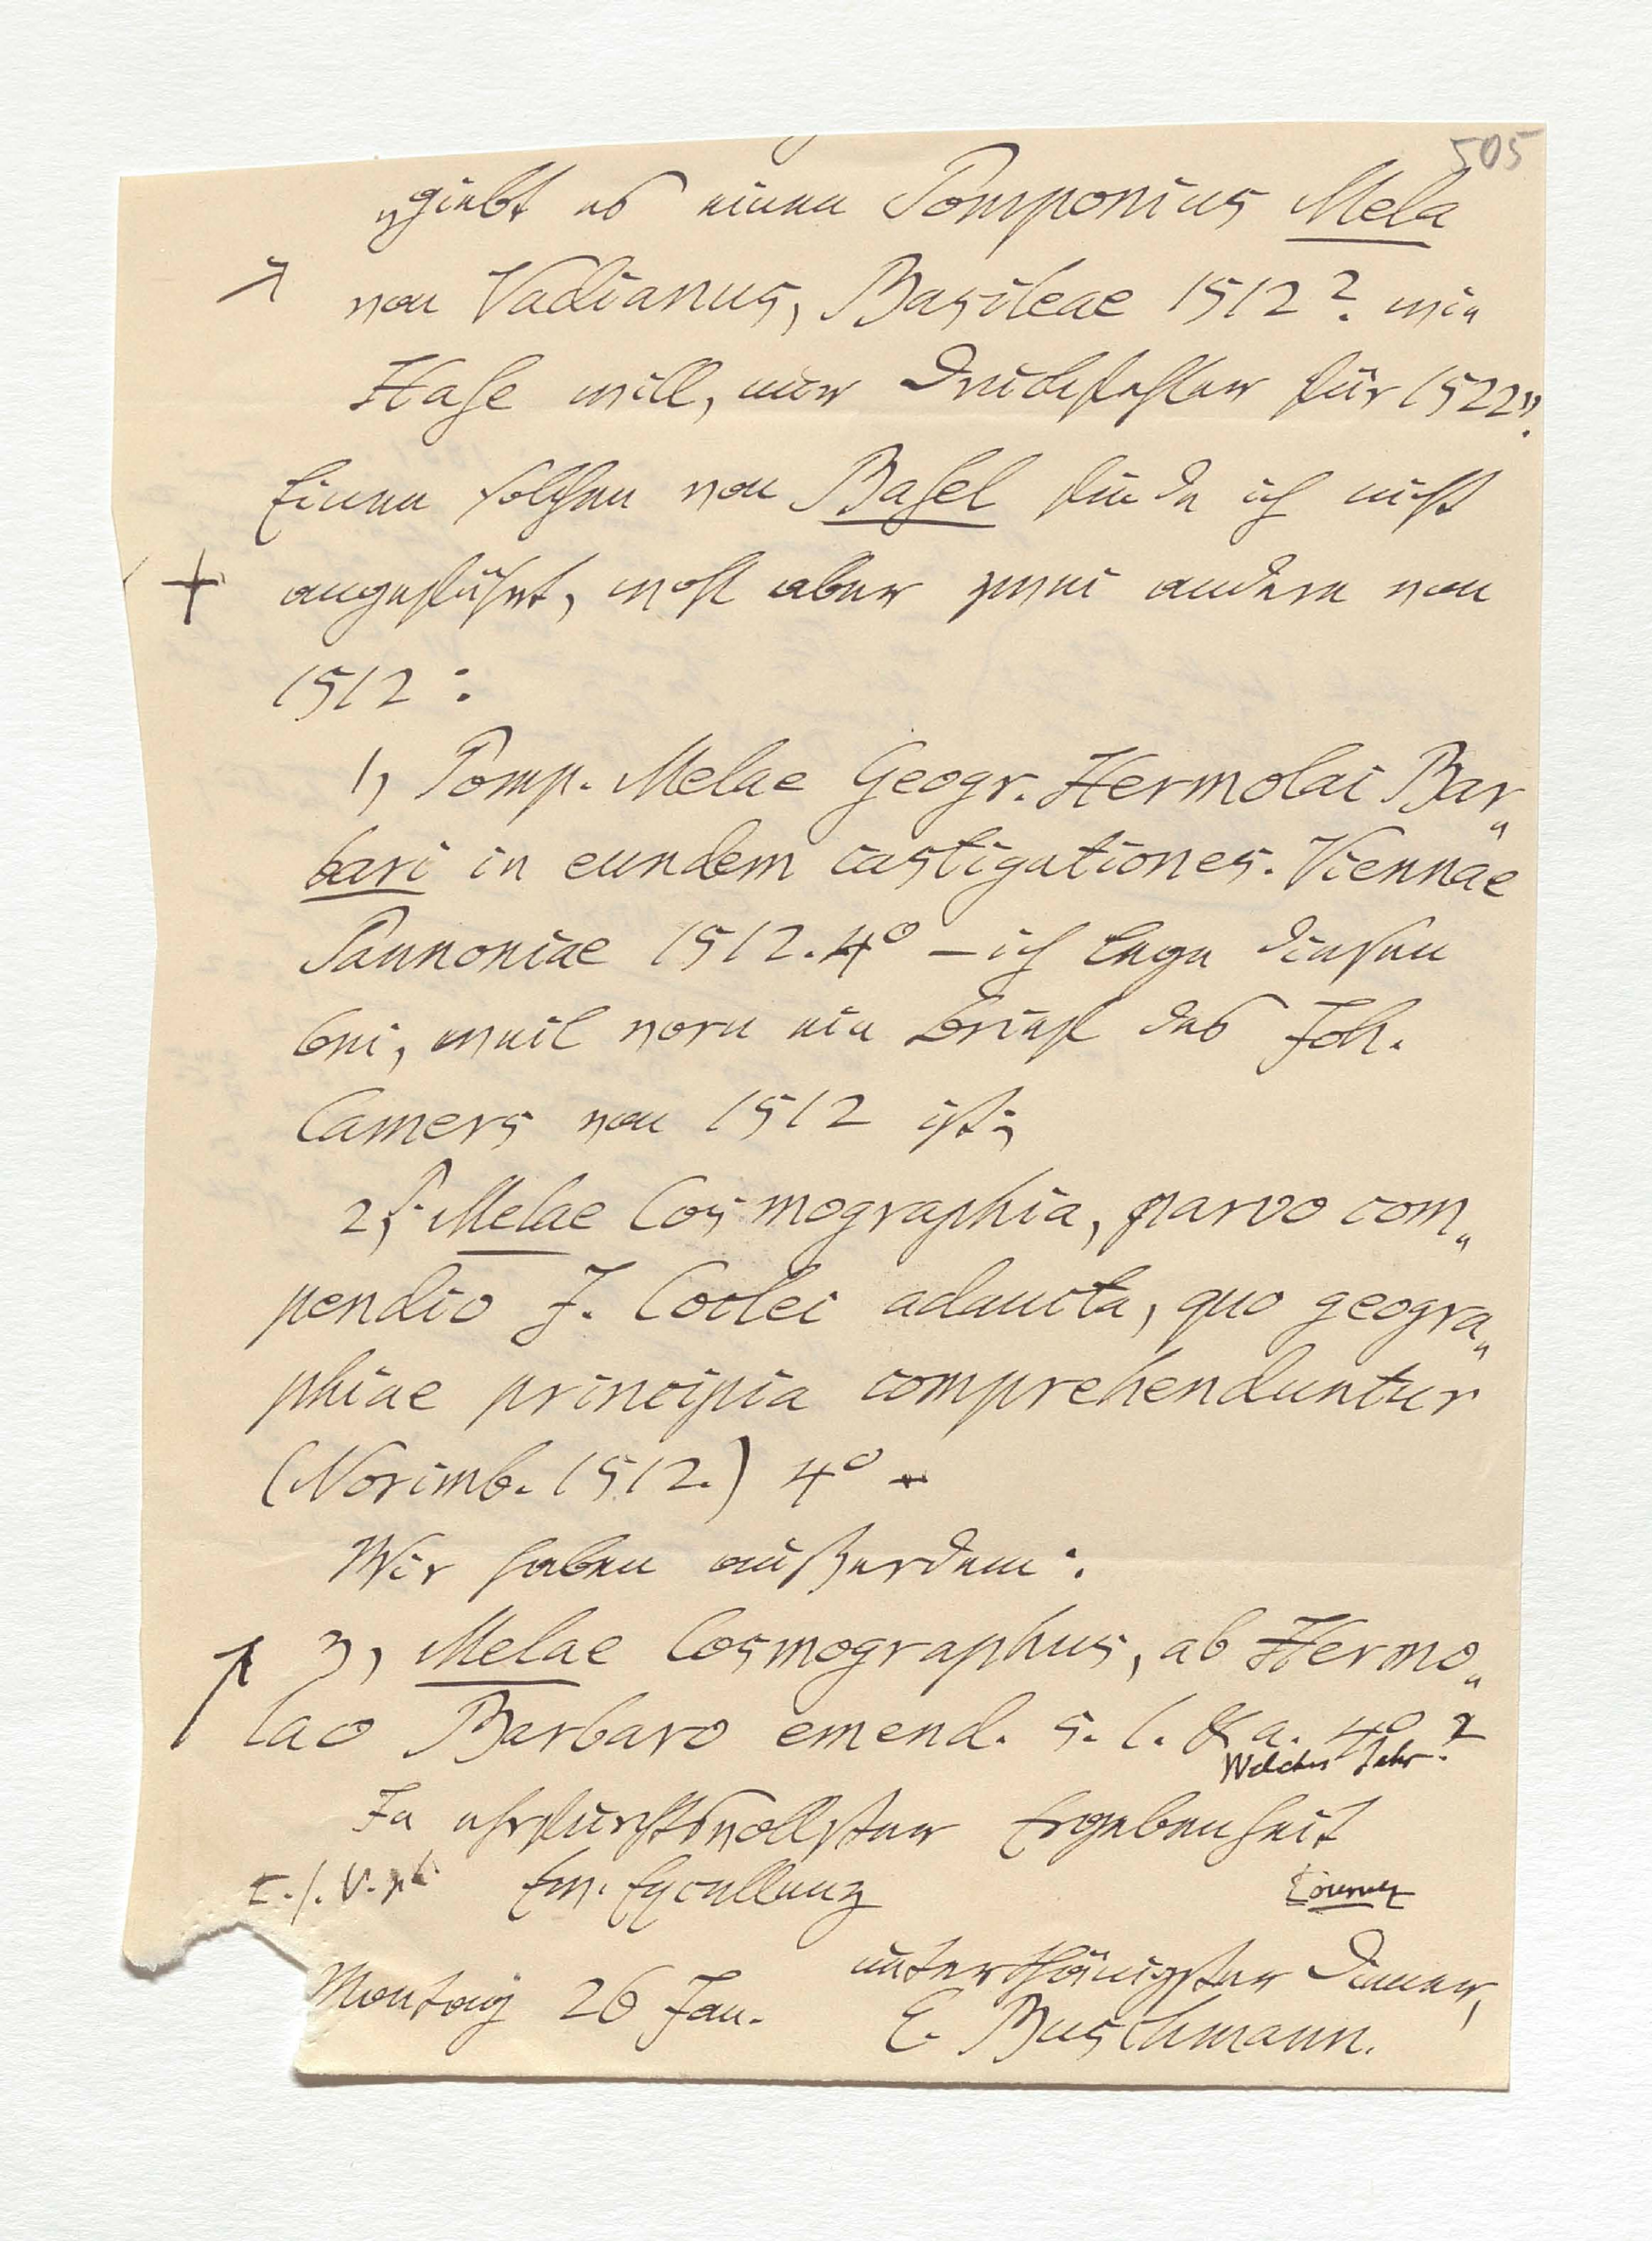 505
„giebt es einen Pomponius Mela
von Vadianus, Basileae 1512? wie
Hase will, nur Druckfehler für 1522“?
Einen solchen von Basel finde ich nicht
+ angeführt, wohl aber zwei andere von
1512:
1, Pomp. Melae Geogr. Hermolai Bar„
bari in eundem castigationes. Viennae
Pannoniae 1512. 4º – ich lege diesen
bei, weil vorn ein Brief des Joh.
Camers von 1512 ist;
2, P. Melae Cosmographia, parvo com„
pendio J. Coclei adaucta, quo geogra„
phiae principia comprehenduntur
(Norimb. 1512.) 4º –
Wir haben außerdem:
3, Melae Cosmographus, ab Hermo„
lao Barbaro emend. s. l. & a. 4º ?
Welches Jahr?
In ehrfurchtsvollster Ergebenheit
Ew. Excellenz
unterthänigster Diener,
Montag 26 Jan.
E. Buschmann.